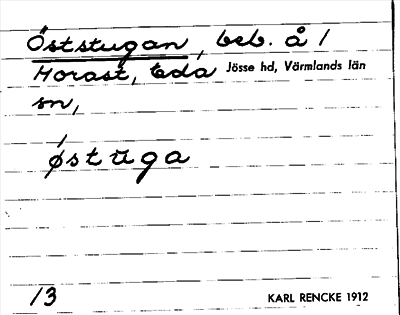 Öststugan, beb. å 1
Horast, Eda Jösse hd, Värmlands län
sn,
ǿstŭga
13
KARL RENCKE 1912